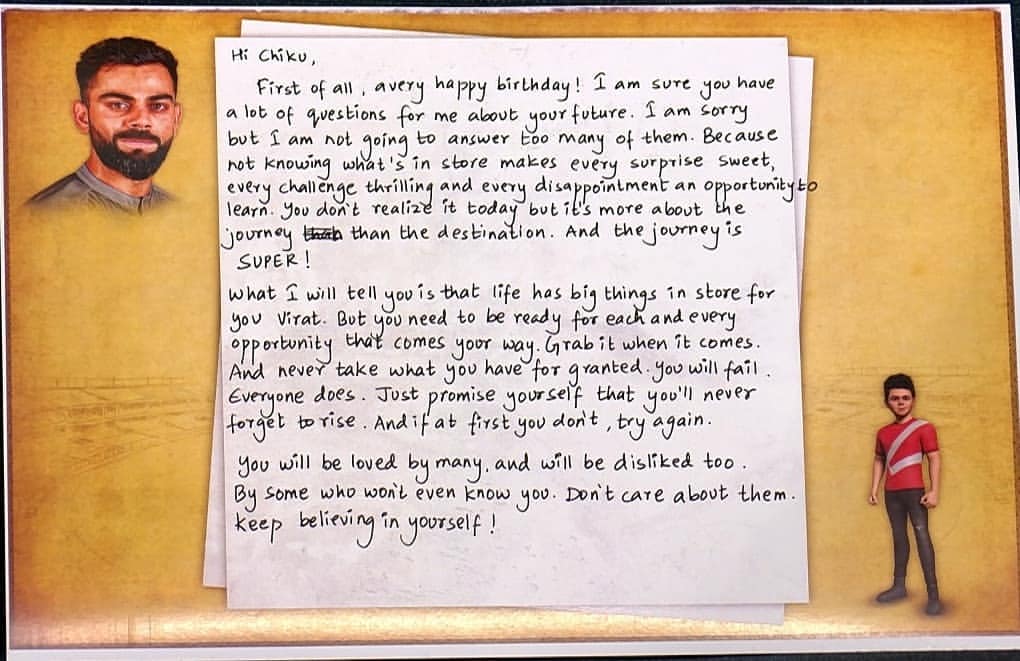 Hi Chiku,
First of all, a very happy birthday! I am sure you have
a lot of questions for me about your future. I am sorry
but I am not going to answer too many of them. Because
not knowing what's in store makes every surprise sweet,
every challenge thrilling and every disappointment an opportunity to
learn. You don't realize it today but it's more about the
journey than than the destination. And the journey is
SUPER!
What I will tell you is that life has big things in store for
you Virat. But you need to be ready for each and every
opportunity that comes your way. Grab it when it comes.
And never take what you have for granted. You will fail.
Everyone does. Just promise yourself that you'll never
forget to rise. And if at first you don't, try again.
You will be loved by many, and will be disliked too.
By some who won't even know you. Don't care about them.
Keep believing in yourself!